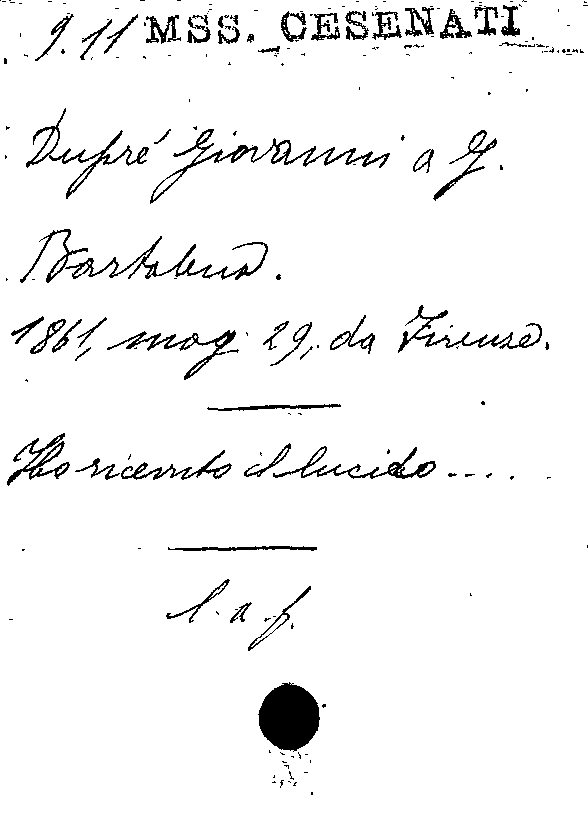 9.11 MSS. CESENATI
Dupré Giovanni a G.
Bartolena.
1861, mag. 29, da Firenze.
Ho ricevuto il lucido....
l. a f.